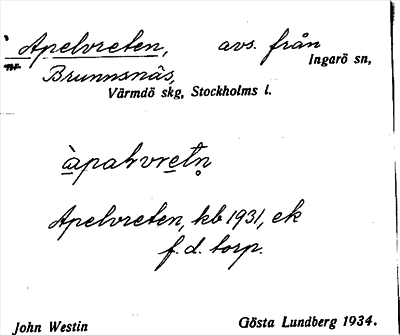 Apelvreten, avs. från
nr. Ingarö sn,
Brunnsnäs,
Värmdö skg, Stockholms l.
àpalvretn̥
Apelvreten, kb 1931, ek
f. d. torp.
John Westin Gösta Lundberg 1934.